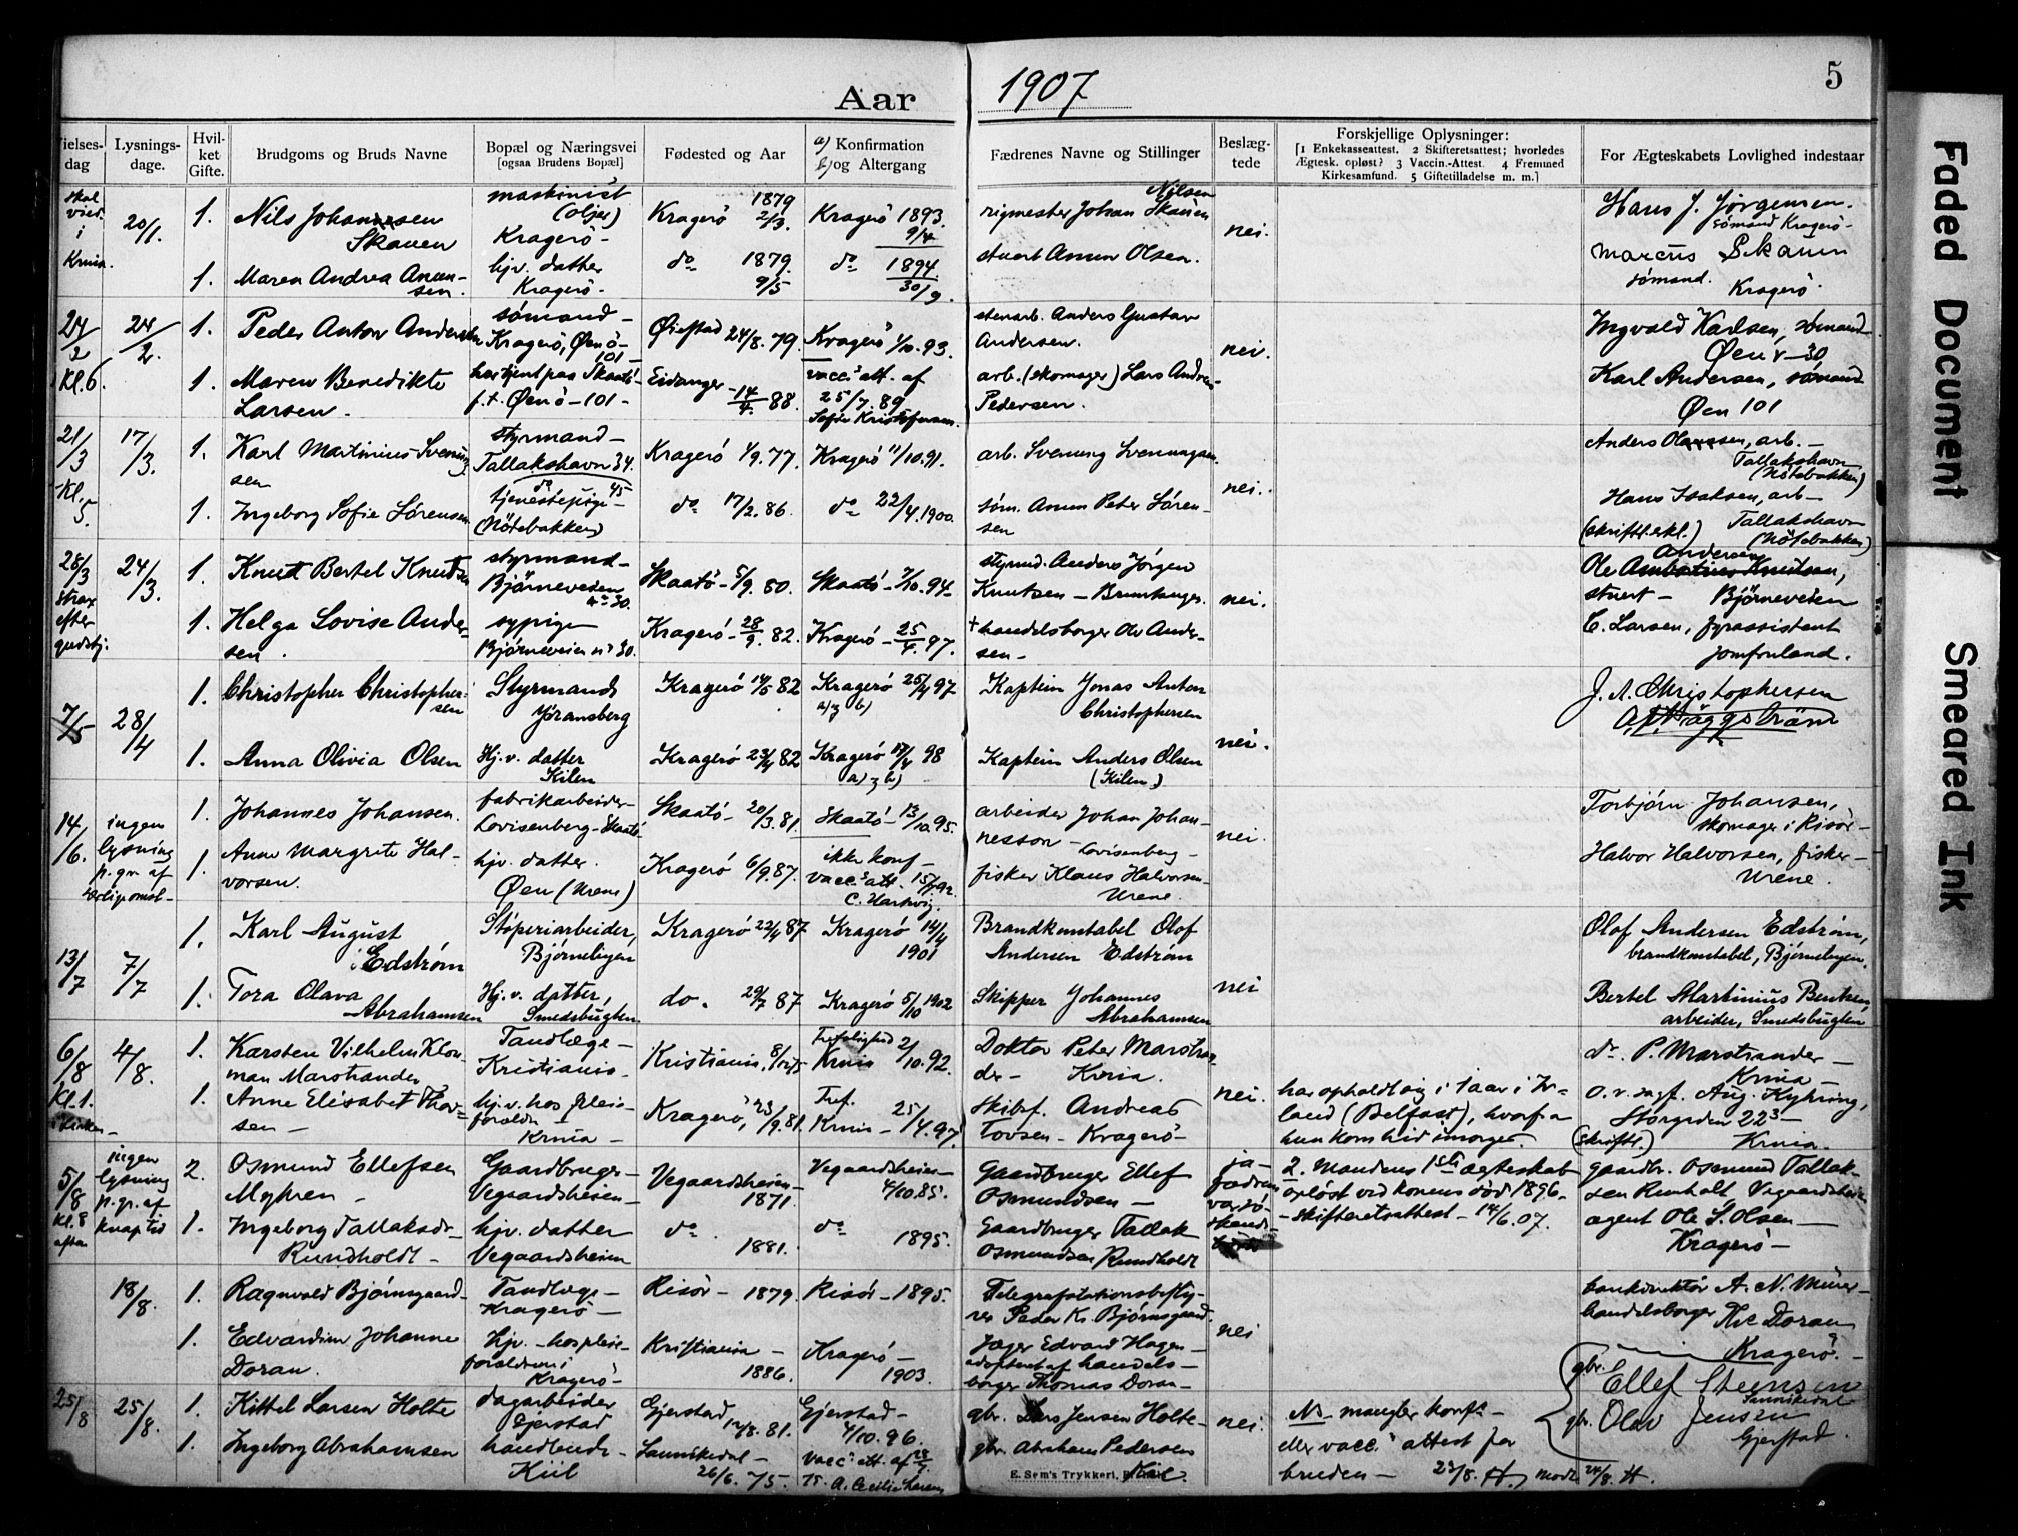 Aar
1907
5
Lysnings-
dage.
Hvil-
ket
Gifte.
Brudgoms og Bruds Navne
Bopæl og Næringsvei
[ogsaa Brudens Bopæl]
Fødested og Aar
a) Konfirmation
b) og Altergang
Fædrenes Navne og Stillinger
Beslæg-
tede
Forskjellige Oplysninger:
[1 Enkekasseattest. 2 Skifteretsattest; hvorledes
Ægtesk. opløst? 3 Vaccin.-Attest. 4 Fremmed
Kirkesamfund. 5 Giftetilladelse m. m.]
For Ægteskabets Lovlighed indestaar
skal
vies
i
Krnia.
20/1.
1.
Nils Johannesen
Skauen
maskinist
Kragerö -
Kragerö
1879
2/3.
Kragerö 1893
9/4
rigmester Johan Skauen
Nilsen
nei.
Hans J. Jørgensen.
sømand Kragerö -
1.
Maren Andrea Anun-
sen.
hjv. datter
Kragerö -
do
1879.
9/5
do
1894
30/9.
stuert Anun Olsen.
Marcus Skauen
sømand.
Kragerö.
24/2
Kl. 6.
24/2.
1.
Peder Anton Andersen
sømand -
Kragerö, Øen ö-
101 -
Øiestad 24/8. 79.
Kragerö 1/10. 93.
stenarb. Anders Gustav
Andersen.
nei.
Ingvald Karlsen, sømand
30
1.
Maren Benedikte
Larsen.
har tjent paa Skaatö -
f.t. Øen ö - 101 -
Eidanger - 14/4. 88.
vacc. att. af
25/7. 89
Sofie Kristofersen.
arb. (skomager) Lars Andreas
Pedersen.
Karl Andersen, sømand
Øen 101
21/3
Kl. 5.
17/3.
1.
Karl Martinius Svenning-
sen
styrmand -
Tallakshavn 34.
Kragerö 4/9. 77.
Kragerö 11/10. 91.
arb. Svenning Svenningsen.
nei.
Anders Olaussen, arb. -
Tallakshavn
(Nötebakken)
1.
Ingeborg Sofie Sørensen
do 45
tjenestepige -
(Nötebakken)
do 17/2. 86.
do 22/4. 1900.
søm. Anun Peter Søren-
sen
Hans Isaksen, arb -
(skriftl. erkl.) Tallakshavn
(Nötebakken)
28/3
strax
efter
gudstj.
24/3.
1.
Knut Bertel Knutsen
styrmand -
Björneveien
no 30.
Skaatö - 5/9. 80.
Skaatö - 7/10. 94.
styrmd. Anders Jörgen
Knutsen -
nei.
Andersen
Ole Ambortius Knutsen,
stuert - Björneveien
1.
Helga Lovise Ander-
sen.
sypige
Björneveien no 30.
Kragerö - 28/9. 82.
Kragerö - 25/4. 97.
+ handelsborger Ole Ander-
sen -
C. Larsen, fyrassistent
Jomfruland.
7/5
28/4
1.
Christopher Christopher-
sen
Styrmand
Jöransberg
Kragerö 14/5 82
Kragerö 25/4 97
a) 3 b)
Kaptein Jonas Anton
Christophersen
nei.
J. A. Christophersen
1.
Anna Olivia Olsen
Hj. v. datter
Kilen
Kragerö 23/4 82
Kragerö 17/4 98
a) 3 b)
Kaptein Anders Olsen
(Kilen)
14/6.
ingen
lysning
p. gr. af
1.
Johannes Johansen.
fabrikarbeider -
Lovisenberg - Skaatö
Skaatö - 20/3. 81.
Skaatö - 13/10. 95.
arbeider Johan Johan-
nesson - Lovisenberg -
nei.
Torbjørn Johansen,
skomager i Risör -
1.
Anne Margrete Hal-
vorsen.
hjv. datter.
Øen (Urene)
Kragerö 6/9. 87.
ikke konf -
vacc. att. 15/7. 92.
C. Hartvig.
fisker Klaus Halvorsen -
Urene.
Halvor Halvorsen, fisker -
Urene.
13/7
7/7
1.
Karl August
Edström
Støperiarbeider,
Bjørnelingen
Kragerö 22/4 87
Kragerö 14/4
1901
Brandkonstabel Olof
Andersen Edström
nei
Olof Andersen Edström,
brandkonstabel, Bjørnelingen.
1.
Tora Olava
Abrahamsen
Hj. v. datter,
Smedsbugten
do. 29/7 87
Kragerö 5/10 1902
Skipper Johannes
Abrahamsen
Bertel Martinius Bentsen
arbeider, Smedsbugten
6/8
Kl. 1.
4/8.
1.
Karsten Vilhelm Klou-
man Marstrander
Tandlæge -
Kristiania.
Kristiania,
Trefoldighed
Krnia 2/10. 92.
Doktor Peter Marstran-
der - Krnia.
nei.
dr. P. Marstrander -
Krnia -
1.
Anne Elisabet Thov-
sen -
hjv. hos pleie-
foreldre
Krnia -
Kragerö, 23/9. 81.
Tref.
Krnia - 25/4. 97.
Skibsf. Andreas
Tovsen - Kragerö -
har opholdt sig i 1 aar i Ir-
land (Belfast), hvorfra
hun kom hid imorges.
o. r. sagf. Aug. Kyhring,
Storgaden 22 -
(skriftl) Krnia.
5/8
Kl. 8
aften
ingen
lysning
p. gr. af
knap tid
2.
Osmund Ellefsen
Myhren -
Gaardbruger -
Vegaardsheien -
Vegaardsheien -
1871.
Vegaardsheien -
4/10. 85.
Gaardbruger Ellef
Osmundsen -
ja -
fædrene
var sö-
skende-
2. Mandens 1ste ægteskab
opløst ved konens död 1896 -
- skifteretsattest - 14/6. 07.
gaardbr. Osmund Tallak-
sen Runholt Vegaardsheien
1.
Ingeborg Tallaksdr.
Rundholdt -
hjv. datter
Vegaardsheien
do.
1881.
do
1895.
Gaardbruger Tallak
Osmundsen Rundholdt
agent Ole S. Olsen -
Kragerö -
18/8.
1.
Ragnvald Bjørnsgaard -
Tandlæge -
Kragerö -
Risör - 1879.
Risör - 1895.
Telegrafstationsbesty-
rer Peder Kr. Bjørnsgaard.
nei
bankdirektör A. N. Meier -
handelsborger Thr. Doran
Kragerö. -
1.
Edvardine Johanne
Doran.
Hjv. - hos pleie-
foreldrene i
Kragerö -
Kristiania -
1886.
Kragerö -
1903.
Jæger Edvard Hagen -
adopteret af handels-
borger Thomas Doran -
25/8
25/8.
1.
Kittel Larsen Holte
dagarbeider
Gjerstad
Gjerstad
12/8. 81.
Gjerstad -
4/10. 96.
gbr. Lars Jensen Holte -
nei.
NB - mangler konf. -
eller vacc. attest for
bruden - 23/8. H. modt. 24/8. H.
gbr. Ellef Steensen
Sannikedal
1.
Ingeborg Abrahamsen
handlende -
Kiil
Sannikedal -
26/6. 75.
vacc. att. af
75. A. Cecilie Larsen
gbr. Abraham Pedersen
Kiil.
gbr. Olav Jensen
Gjerstad.
E. Sem's Trykkeri,
Faded Document
Smeared Ink